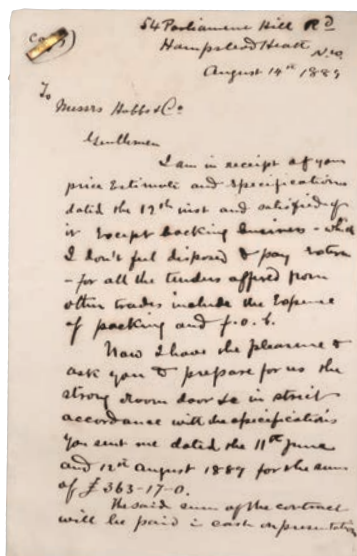 (Copy)
54 Parliament Hill Rd
Hampstead Heath N.W.
August 14th 1889
To
Messrs Hobbs & Co
Gentlemen
I am in receipt of your
price Estimate and specifications
dated the 12th inst and satisfied of
it Except packing - which
I don't feel disposed to pay
- for all the tenders offered from
other trades include the Expense
of packing and f.o.b.
Now I have the pleasure to
ask you to prepare for us the
strong room door &c in strict
accordance with the specifications
you sent me dated the 11th June
and 12th August 1889 for the sum
of £363-17-0.
The said sum of the contract
will be paid in cash on presentation